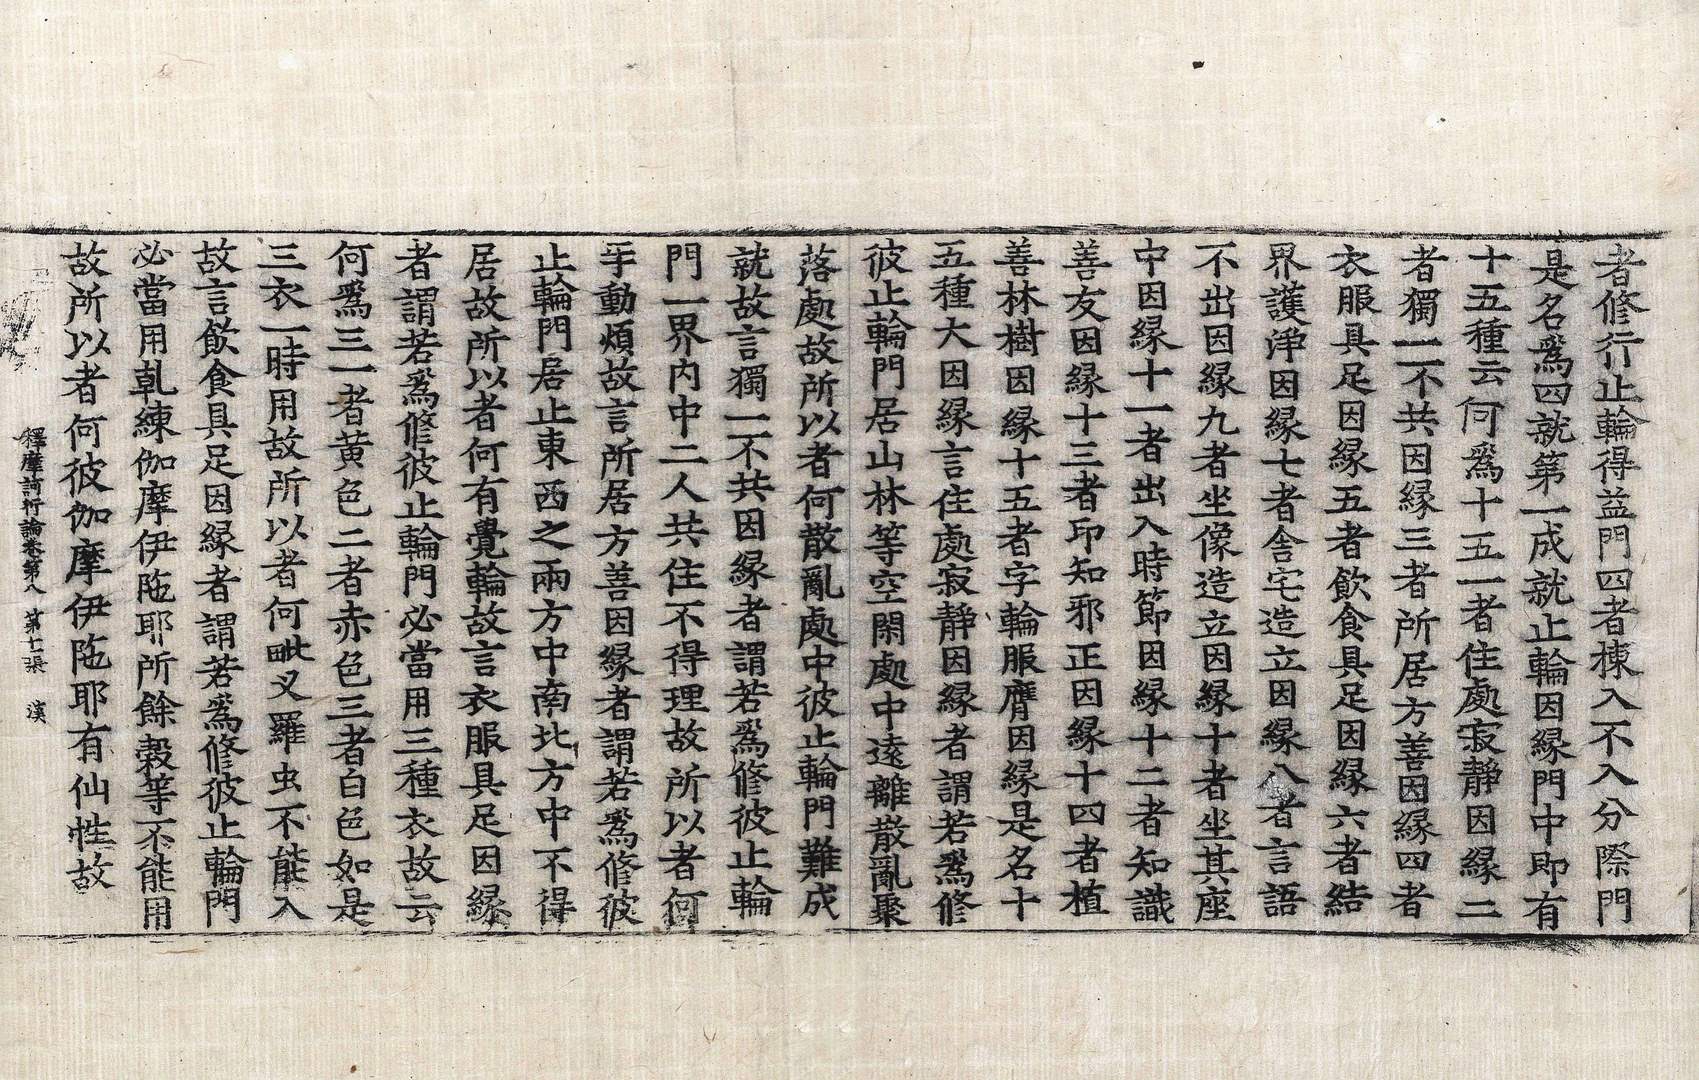 者修行止輪得益門四者棟入不入分際門
是名爲四就第一成就止輪因縁門中即有
十五種云何爲十五一者住處寂静因縁二
者獨一不共因縁三者所居方善因縁四者
衣服具足因縁五者飲食具足因縁六者結
界護淨因縁七者舍宅造立因縁八者言語
不出因縁九者坐像造立因縁十者坐其座
中因縁十一者出入時節因縁十二者知識
善友因縁十三者印知邪正因縁十四者植
善林樹因縁十五者字輪服膺因縁是名十
五種大因縁言住處寂静因縁者謂若爲修
彼止輪門居山林等空閑處中遠離散亂聚
落處故所以者何散亂處中彼止輪門難成
就故言獨一不共因縁者謂若爲修彼止輪
門一界内中二人共住不得理故所以者何
手動煩故言所居方善因縁者謂若爲修彼
止輪門居止東西之兩方中南北方中不得
居故所以者何有覺輪故言衣服具足因縁
者謂若爲修彼止輪門必當用三種衣故云
何爲三一者黄色二者赤色三者白色如是
三衣一時用故所以者何毗叉羅虫不能入
故言飲食具足因縁者謂若爲修彼止輪門
必當用乹練伽摩伊陁耶所餘穀等不能用
故所以者何彼伽摩伊陁耶有仙性故
釋摩訶衍論卷第八 第十二張 漢